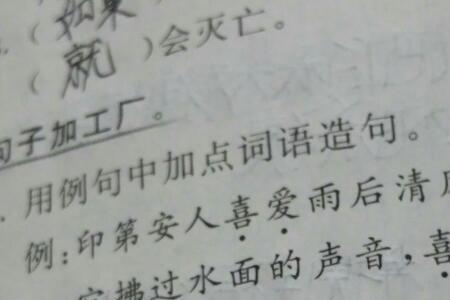 （如果
（就）会灭亡。
句子加工厂。
用例句中加点词语造句。
例：印第安人喜爱雨后清
拂过水面的声音，喜